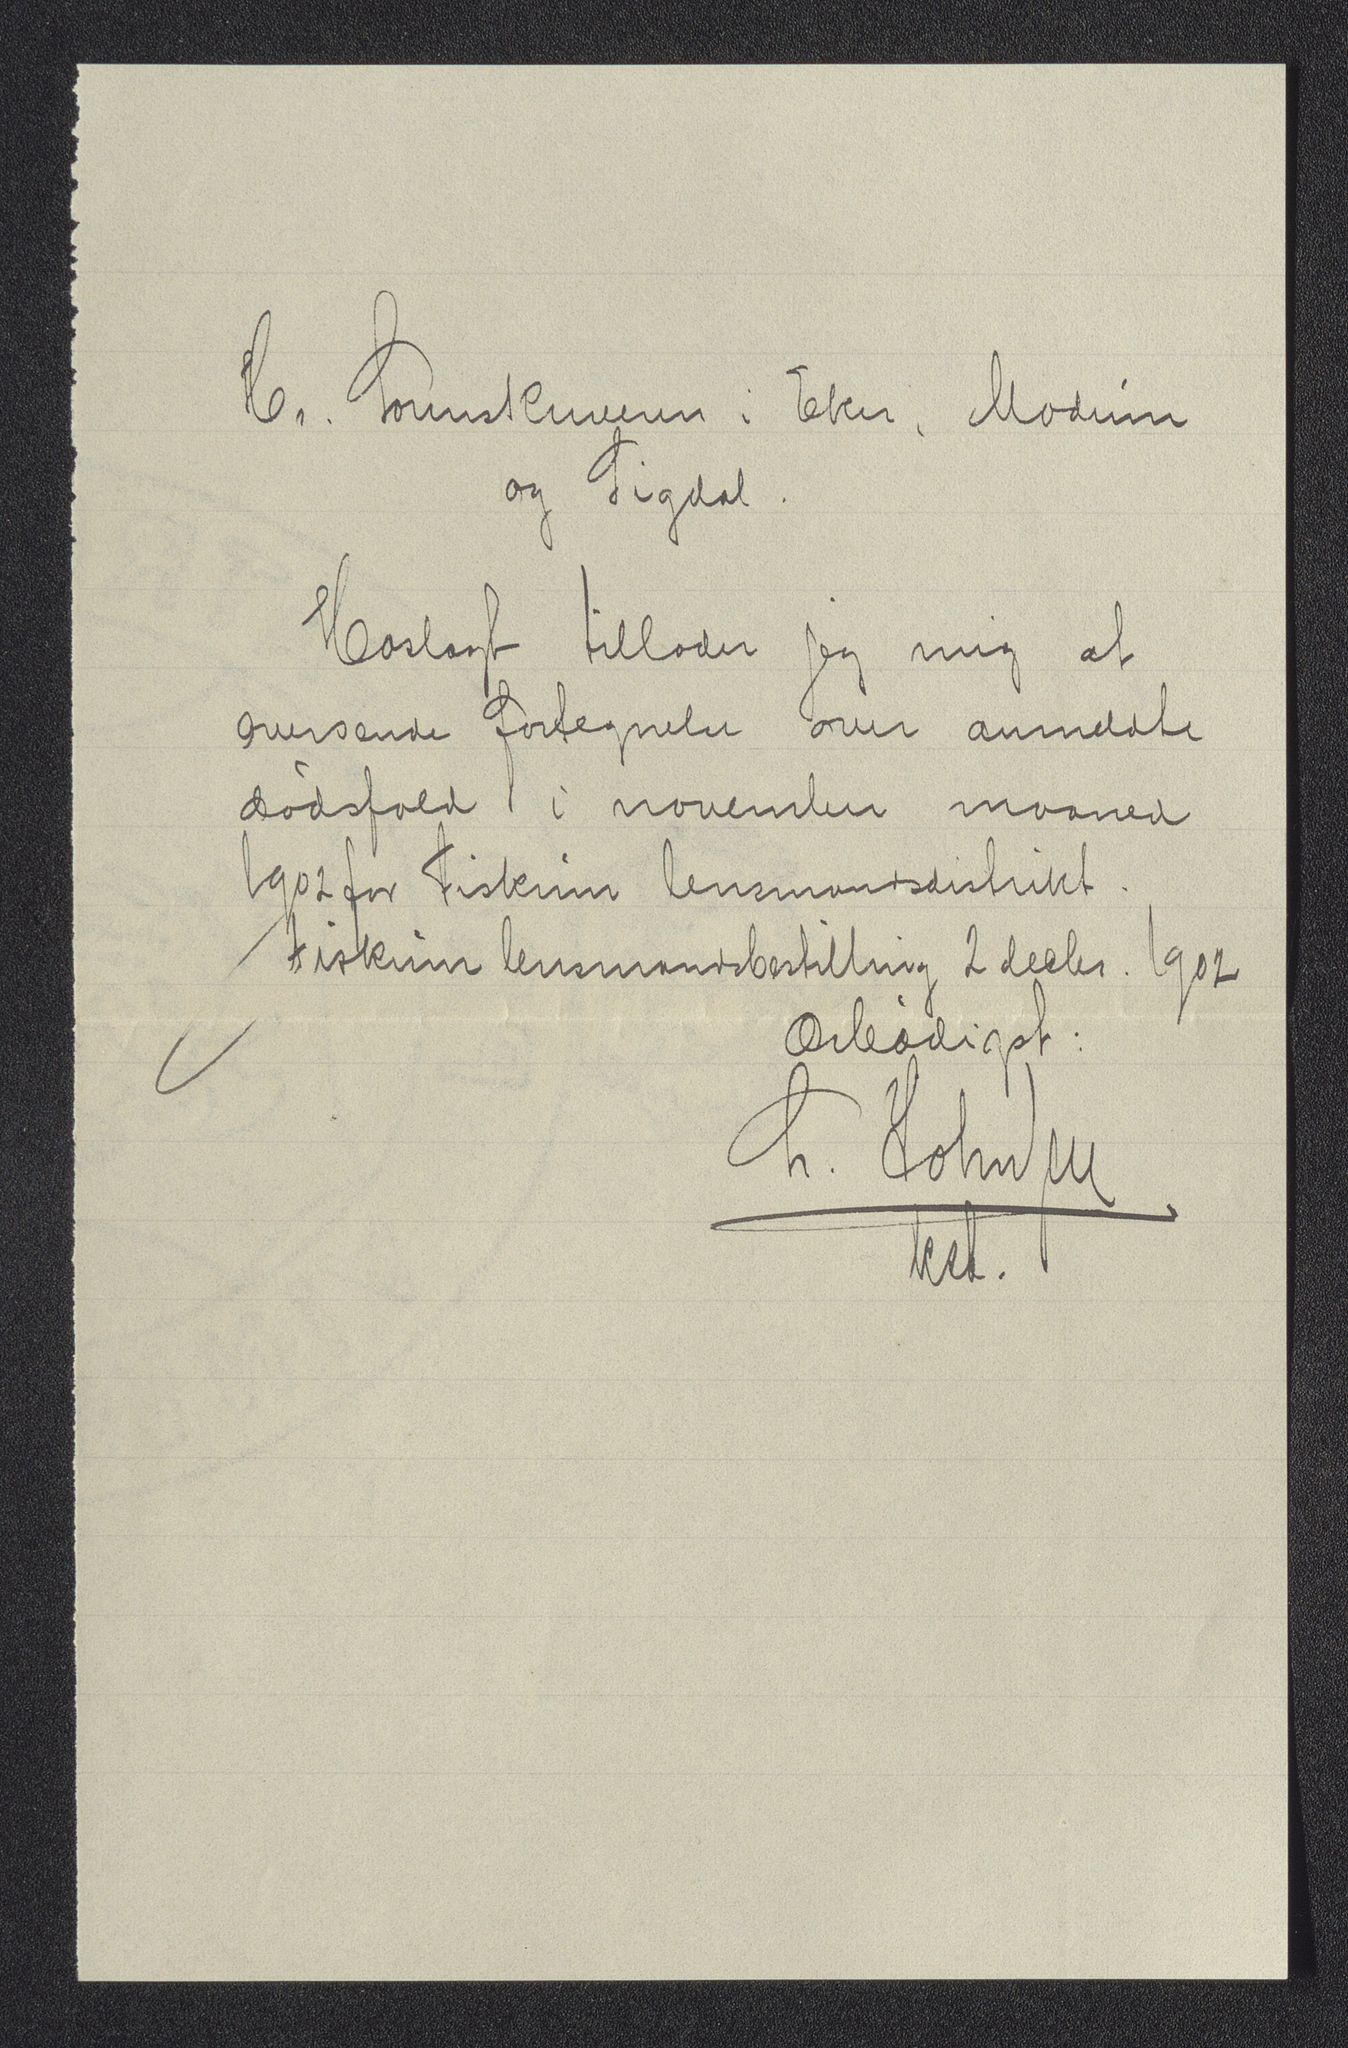 Hr. Sorenskriveren i Eker, Modum
og Sigdal.
Hoslagt tillader jeg mig at
oversende fortegnelse over anmeldte
dødsfald i november maaned
1902 for Fiskum lensmandsdistrikt.
Fiskum lensmandsbestilling 2 decbr. 1902
Ærbødigst:
kst.